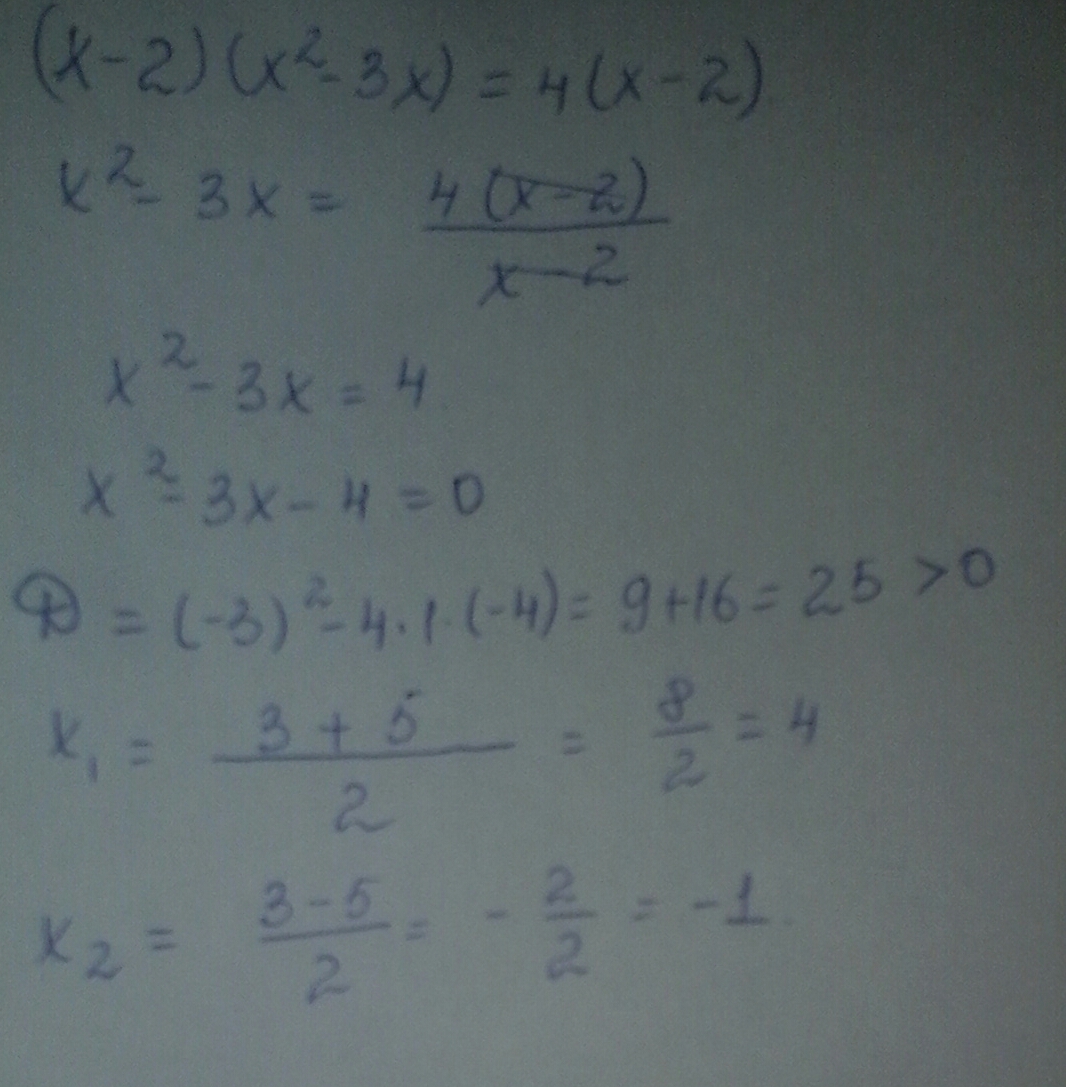 (x-2)(x²-3x) = 4(x-2)
x²-3x = 4(x-2)/x-2
x²-3x = 4
x²-3x-4 = 0
D = (-3)²-4·1·(-4) = 9+16 = 25 >0
x₁ = 3+5/2 = 8/2 = 4
x₂ = 3-5/2 = -2/2 = -1